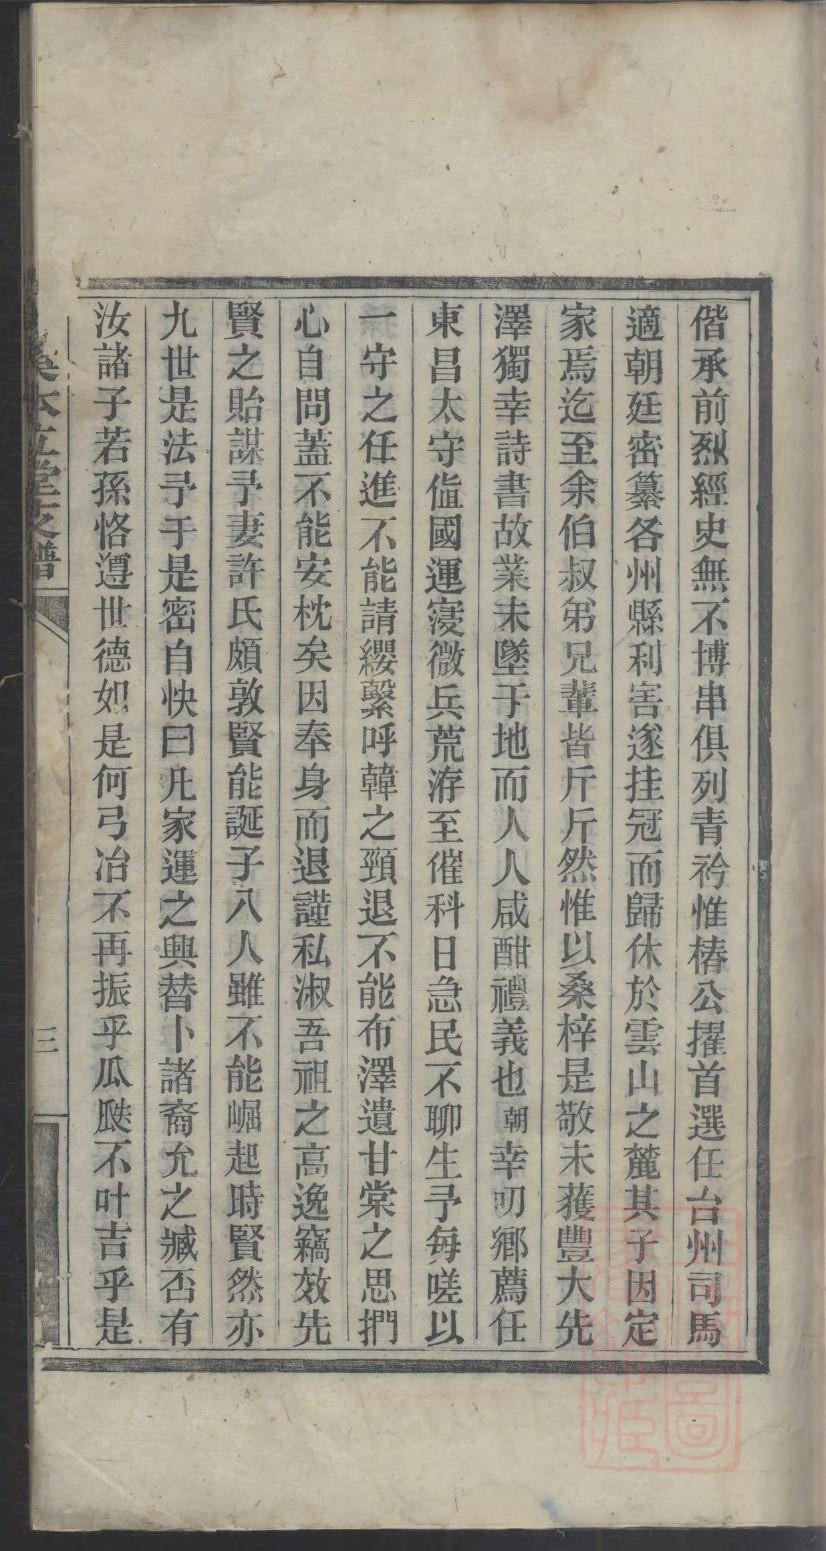 偕承前烈經史無不博串俱列青衿惟椿公擢首選任台州司馬
適朝廷密纂各州縣利害遂挂冠而歸休於雲山之麓其子因定
家焉迄至余伯叔弟兄輩皆斤斤然惟以桑梓是敬未獲豐大先
澤獨幸詩書故業未墜于地而人人咸酣禮義也朝幸叨鄉薦任
東昌太守値國運寖微兵荒洊至催科日急民不聊生予每嗟以
一守之任進不能請纓繫呼韓之頸退不能布澤遺甘棠之思捫
心自問蓋不能安枕矣因奉身而退謹私淑吾祖之高逸竊效先
賢之貽謀予妻許氏頗敦賢能誕子八人雖不能崛起時賢然亦
九世是法予于是密自快曰凡家運之興替卜諸裔允之臧否有
汝諸子若孫恪遵世德如是何弓冶不再振乎瓜瓞不叶吉乎是
本立堂支譜
三